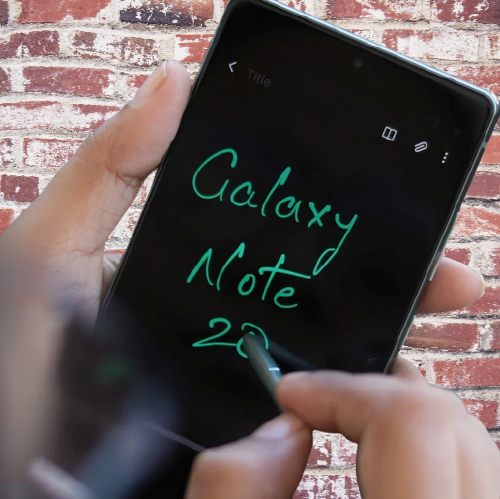 Title
Galaxy
Note
20